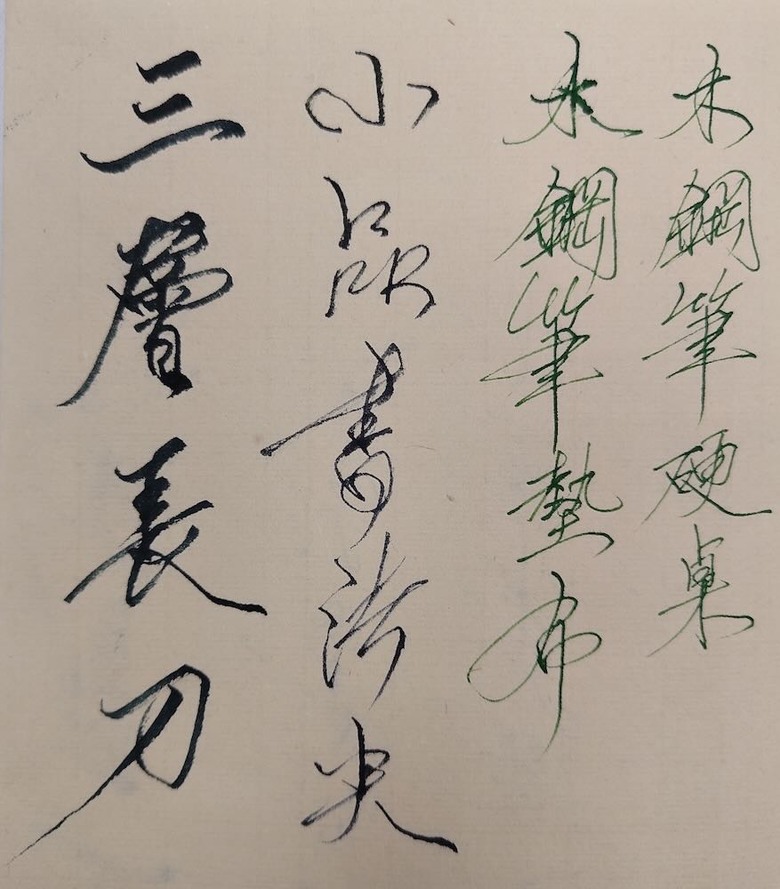 木鋼筆硬桌
木鋼筆墊布
小品書法尖
三層長刀